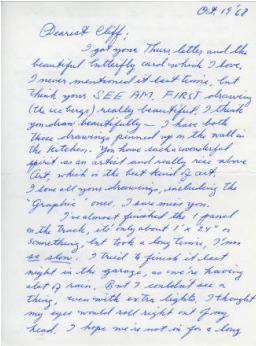 Oct 19 '68
Dearest Cliff:
I got your Thurs letter and the
beautiful butterfly card which I love.
I never mentioned it last time, but
think your SEE AM FIRST drawing
(the ice bergs) really beautiful. I think
you draw beautifully — I have both
those drawings pinned up on the wall in
the kitchen. You have such a wonderful
spirit as an artist and really rise above
Art, which is the best kind of art.
I love all your drawings, including the
"graphic" ones. I sure miss you.
I've almost finished the 1 panel
on the truck, it's only about 1' x 2 1/4" or
something, but took a long time, I'm
so slow. I tried to finish it last
night in the garage, as we're having
alot of rain. But I couldn't see a
thing, even with extra lights. I thought
my eyes would roll right out of my
head. I hope we're not in for a long